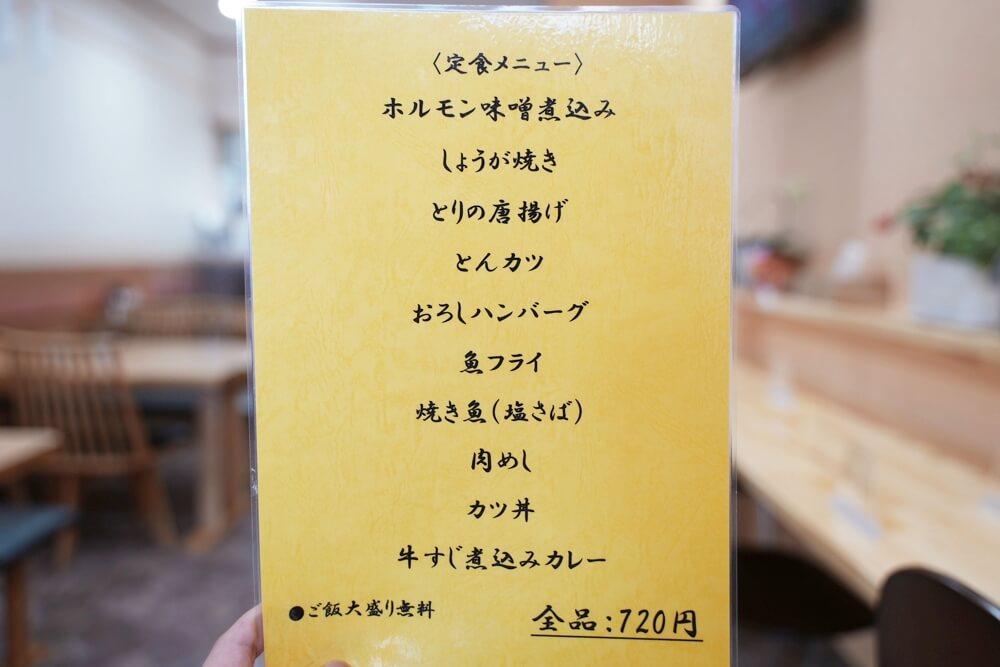 〈定食メニュー〉
ホルモン味噌煮込み
しょうが焼き
とりの唐揚げ
とんカツ
おろしハンバーグ
魚フライ
焼き魚(塩さば)
肉めし
カツ丼
牛すじ煮込みカレー
●ご飯大盛り無料
全品:720円